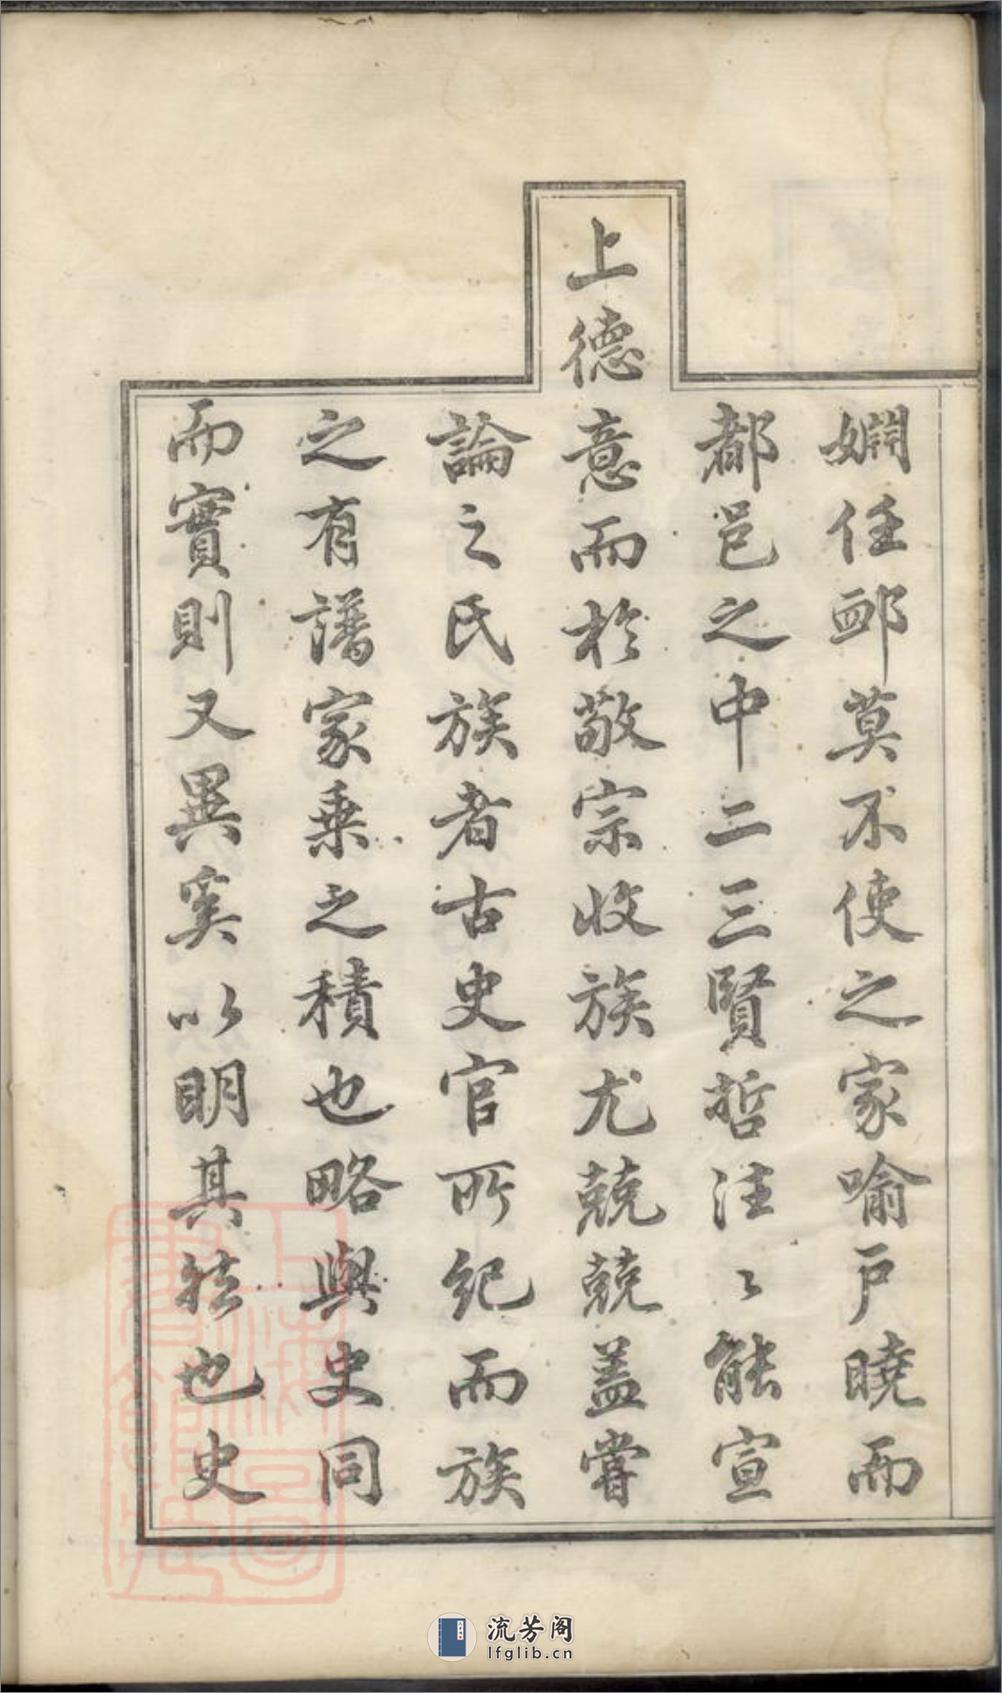 嫺任䘏莫不使之家喻戶曉而
都邑之中二三賢哲注〻能宣
上德意而於敬宗收族尤兢兢蓋嘗
論之氏族者古史官所紀而族
之有譜家乗之積也略與史同
而實則又異奚以明其然也史
上海圖書館藏
流芳阁
lfglib.cn